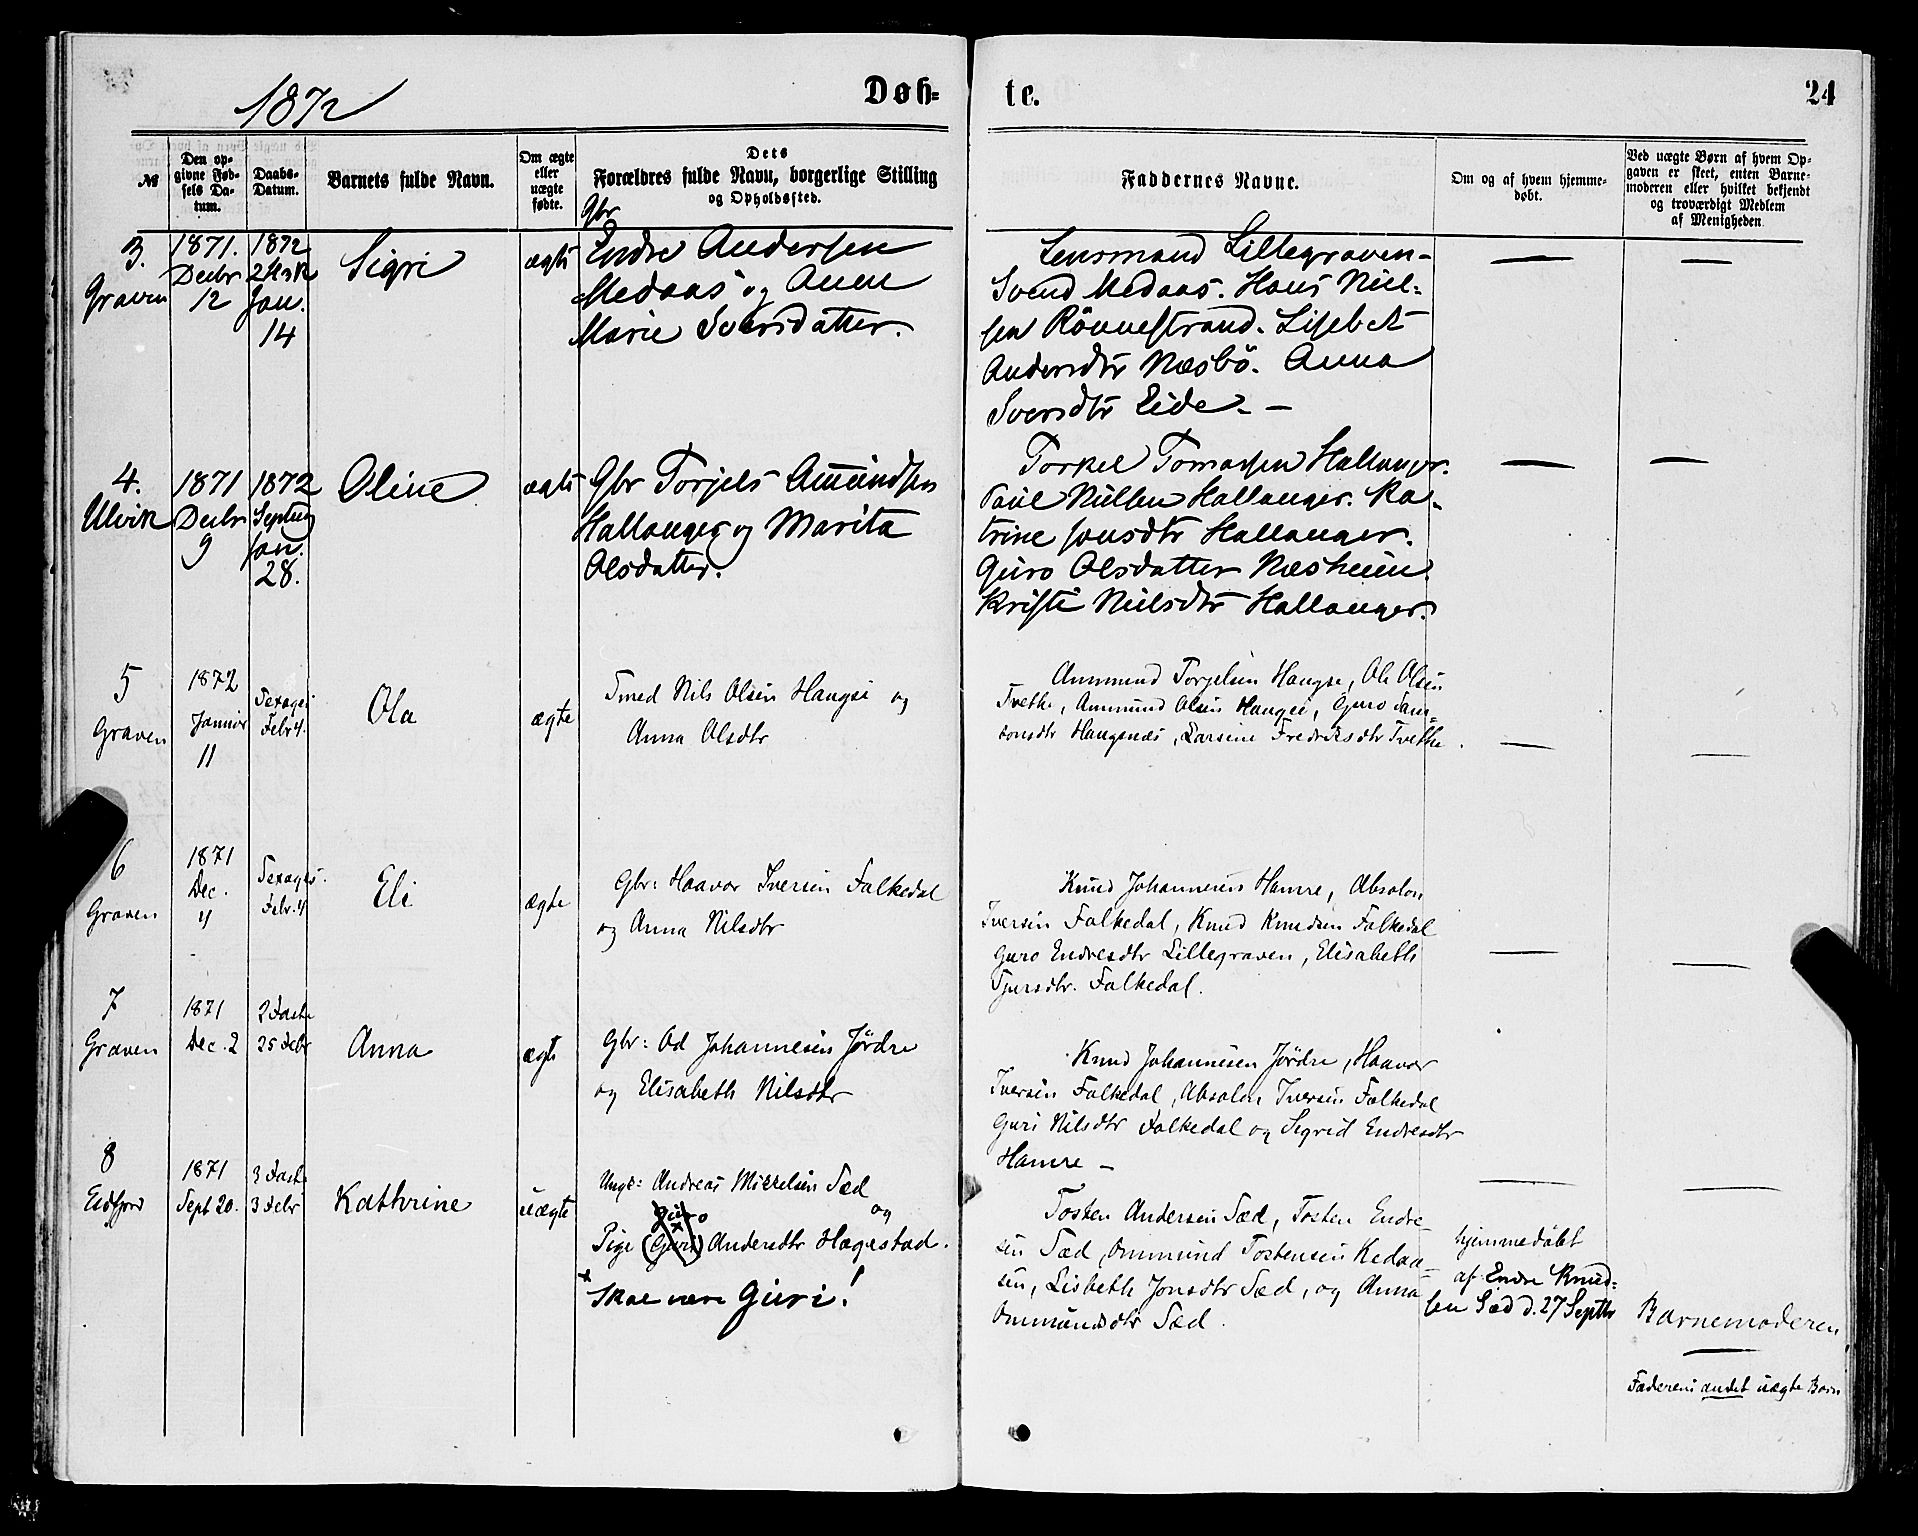 1872
Døb-
te.
24
№
Den op-
givne Fød-
sels Da-
tum.
Daabs-
Datum.
Barnets fulde Navn.
Om ægte
eller
uægte
fødte.
Dets
Forældres fulde Navn, borgerlige Stilling
og Opholdssted.
Faddernes Navne.
Om og af hvem hjemme-
døbt.
Ved uægte Børn af hvem Op-
gaven er skeet, enten Barne-
moderen eller hvilket bekjendt
og troværdigt Medlem
af Menigheden.
3.
Graven
1871.
Decbr
12
1872
Jan.
14
Sigri
ægte
Gbr
Endre Andersen
Medaas og Anne
Marie Sversdatter.
Lensmand Lillegraven-
Svend Medaas. Hans Niel-
sen Rönnestrand. Lisbet
Andersdtr Næsbö. Anna
Sversdtr Eide. —
—
—
4.
Ulvik
1871
Decbr
9
1872
Septug
Jan.
28.
Oline
ægte
Gbr Torjels Amundsen
Hallanger og Marita
Olsdatter.
Torkel Tomassen Hallanger.
Paul Nielsen Hallanger. Ka-
trine Jonsdtr Hallanger.
Guro Olsdatter Næsheim.
Kristi Nielsdtr Hallanger.
—
—
5
Graven
1872
Januar
11
Sexages
Febr 4.
Ola
ægte
Smed Nils Olsen Haugse og
Anna Olsdtr
Ammund Torjelsen Haugse, Ole Olsen
Tvethe, Ammund Olsen Haugse, Guro Sam-
sonsdtr Haugenæs, Larsine Fredriksdtr Tvethe.
—
—
6
Graven
1871
Dec.
4
Sexages.
Febr. 4
Eli
ægte
Gbr: Haavar Iversen Falkedal
og Anna Nilsdtr
Knud Johannesen Hamre, Absalon
Iversen Falkedal, Knud Knudsen Falkedal
Guro Endresdtr Lillegraven, Elisabeth
Falkedal.
—
—
7
Graven
1871
Dec. 2
2 Faste
25 Febr
Anna
ægte
Gbr: Od Johannesen Jørdre
og Elisabeth Nilsdtr
Knud Johannesen Jördre, Haavar
Iversen Falkedal, Absalon Iversen Falkedal
Guri Nilsdtr Falkedal og Sigrid Endresdtr
Hamre —
—
—
8
Eidfjord
1871
Sept 20.
3 Faste
3 Febr
Kathrine
uægte
Ungk: Andreas Mikkelsen Sæd
og
Guro
Pige (Guri) Andersdtr Hagestad.
x Skal være Guri!
Tosten Andersen Sæd, Tosten Endre-
sen Sæd, Ommund Tostensen Kedaa-
sen, Lisbeth Jonsdtr Sæd, og Anna
Ommundsdtr Sæd.
hjemmedöbt
af Endre Knud-
sen Sæd d. 27 Septbr
Barnemoderen
—
Faderens andet uægte Barn